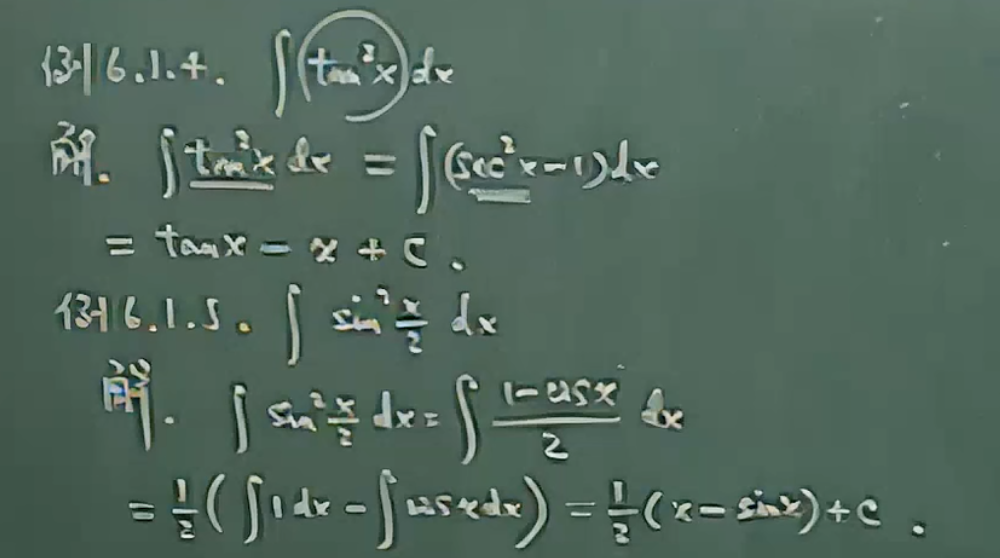 例6.1.4. ∫(tan²x)dx
解. ∫tan²x dx = ∫(sec²x-1)dx
= tanx - x + C.
例6.1.5. ∫ sin² x/2 dx
解. ∫ sin² x/2 dx = ∫ (1-cosx)/2 dx
= 1/2 (∫1dx - ∫cosxdx) = 1/2 (x - sinx) + C.